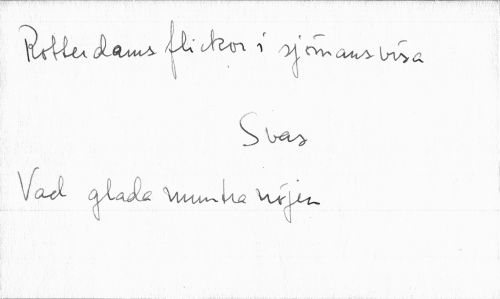 Rotterdams flickor i sjömansvisa
Svas
Vad glada muntra nöjen